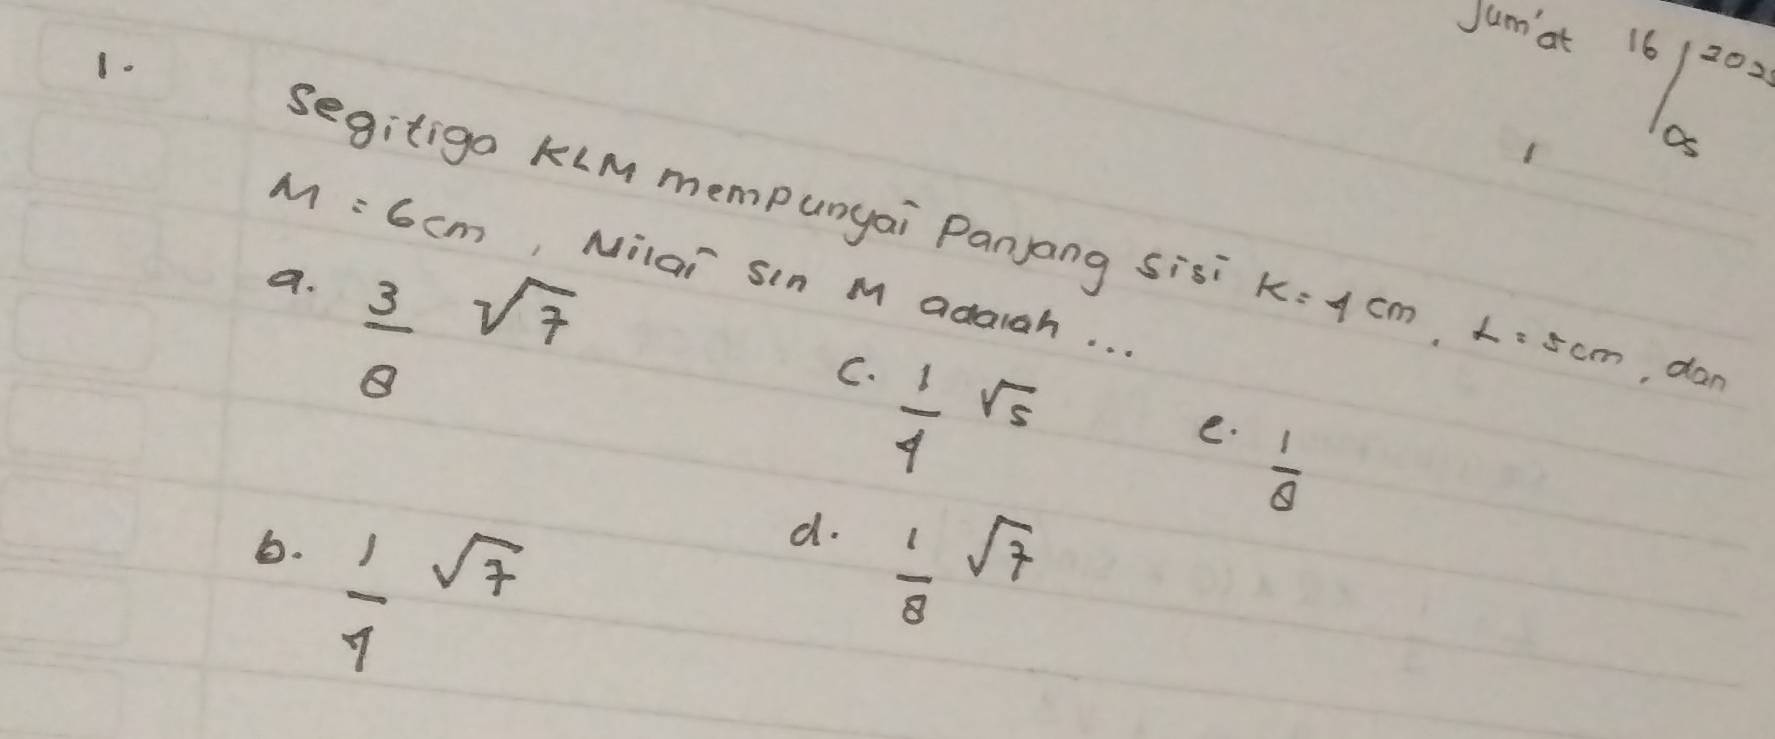 Jum'at 16/05 2025
1.
Segitiga KLM mempunyai Panjang sisi K = 4 cm, L = 5 cm, dan
M = 6 cm, Nilai sin M adalah ...
a. 3/8 √7
c. 1/4 √5
e. 1/8
b. 1/4 √7
d. 1/8 √7